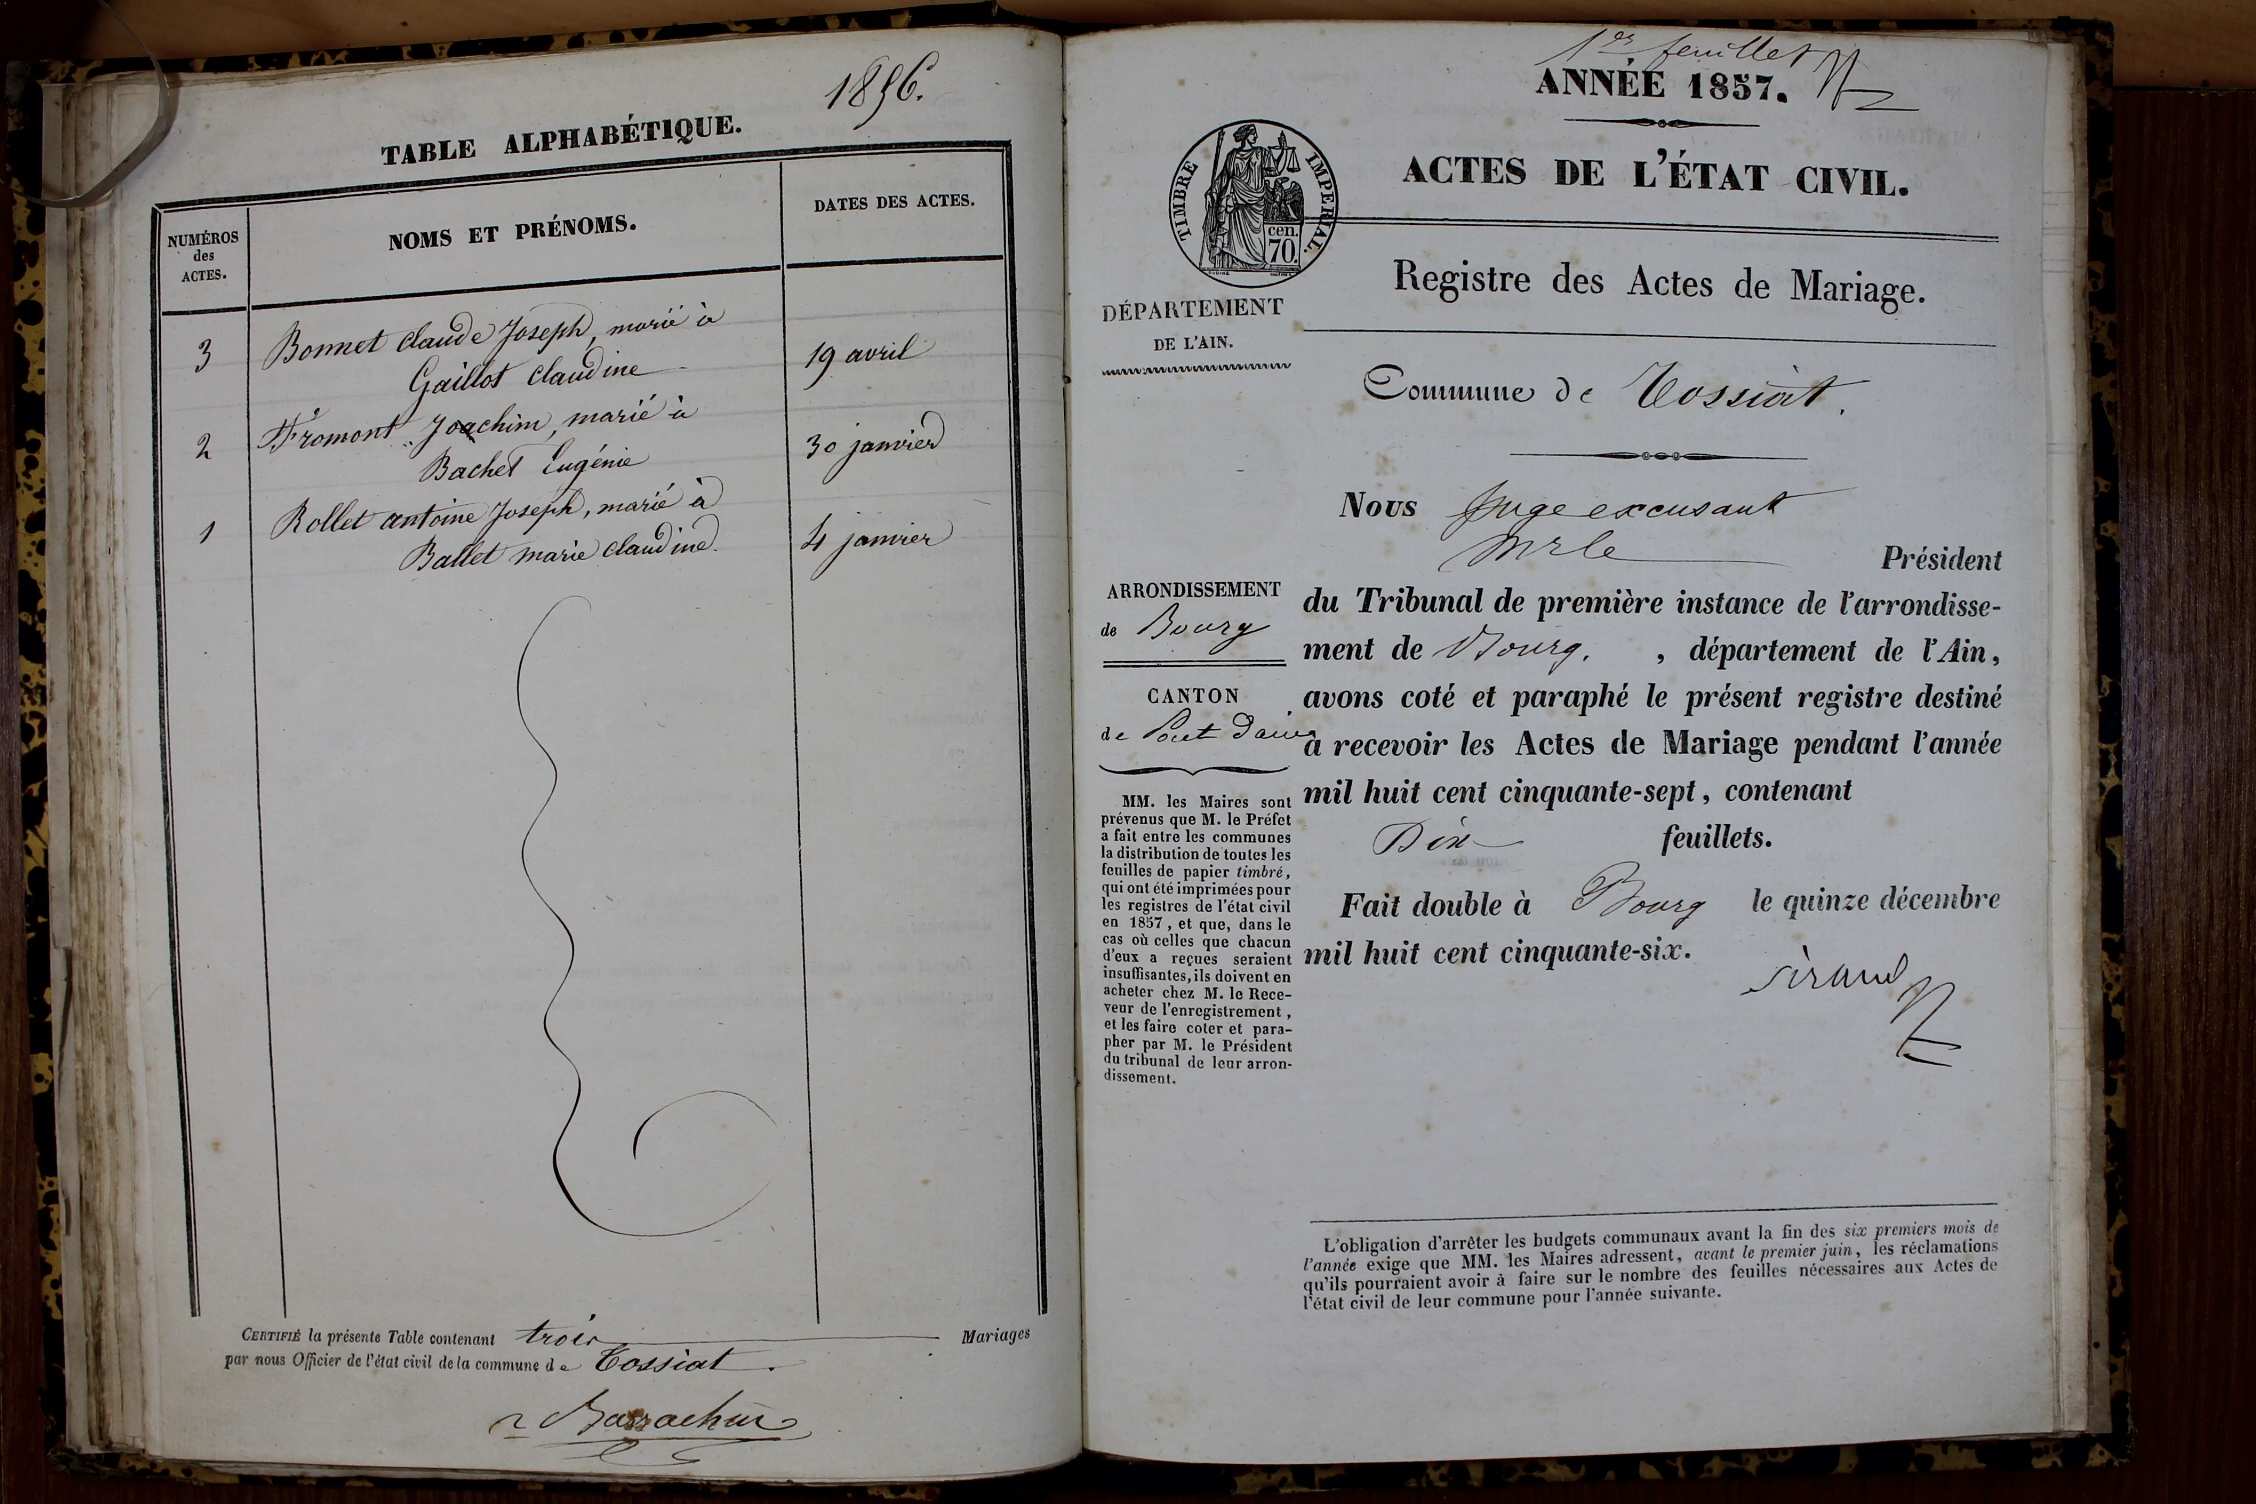 1856.
TABLE ALPHABÉTIQUE.
NUMÉROS
des
ACTES.
NOMS ET PRÉNOMS.
DATES DES ACTES.
3 Bonnet Claude Joseph, marié à
Gaillot Claudine 19 avril
2 Fromont Joachim, marié à
Bachet Eugénie 30 janvier
1 Rollet antoine Joseph, marié à
Ballet marie claudine. 4 janvier
CERTIFIÉ la présente Table contenant trois Mariages
par nous Officier de l'état civil de la commune de Tossiat.
1er feuillet
ANNÉE 1857.
ACTES DE L'ÉTAT CIVIL.
TIMBRE IMPERIAL.
cen.
70.
Registre des Actes de Mariage.
DÉPARTEMENT
DE L'AIN.
Commune de Tossiat.
Nous Juge excusant
Mr le Président
du Tribunal de première instance de l'arrondisse-
ment de Bourg. , département de l'Ain,
avons coté et paraphé le présent registre destiné
à recevoir les Actes de Mariage pendant l'année
mil huit cent cinquante-sept, contenant
Dix feuillets.
Fait double à Bourg le quinze décembre
mil huit cent cinquante-six.
Sirand
ARRONDISSEMENT
de Bourg
CANTON
de Pont d'ain
MM. les Maires sont
prévenus que M. le Préfet
a fait entre les communes
la distribution de toutes les
feuilles de papier timbré,
qui ont été imprimées pour
les registres de l'état civil
en 1857, et que, dans le
cas où celles que chacun
d'eux a reçues seraient
insuffisantes, ils doivent en
acheter chez M. le Rece-
veur de l'enregistrement,
et les faire coter et para-
pher par M. le Président
du tribunal de leur arron-
dissement.
L'obligation d'arrêter les budgets communaux avant la fin des six premiers mois de
l'année exige que MM. les Maires adressent, avant le premier juin, les réclamations
qu'ils pourraient avoir à faire sur le nombre des feuilles nécessaires aux Actes de
l'état civil de leur commune pour l'année suivante.